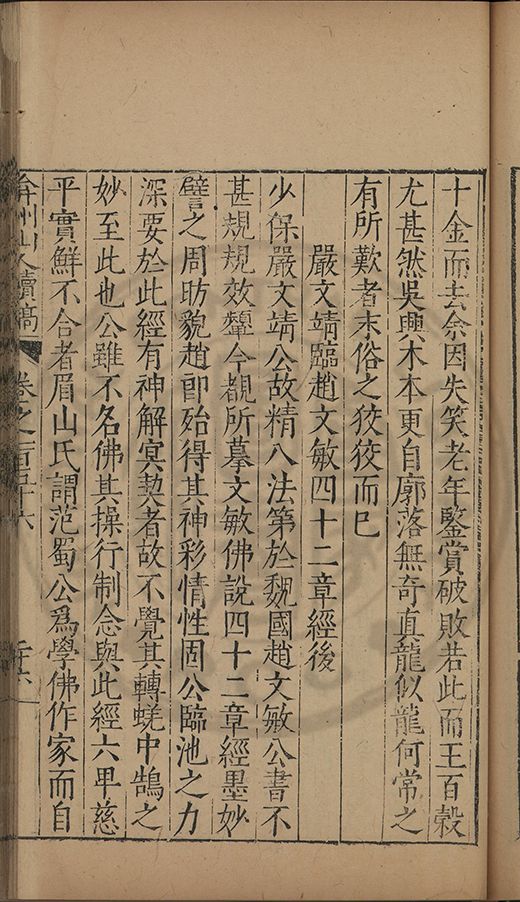 十金而去余因失笑老年鑒賞破敗若此而王百穀
尤甚然吳興木本更自廓落無奇真龍似龍何常之
有所歎者末俗之狡狡而已
嚴文靖臨趙文敏四十二章經後
少保嚴文靖公故精八法第於魏國趙文敏公書不
甚規規效顰今覩所摹文敏佛說四十二章經墨妙
譬之周昉貌趙郎殆得其神彩情性固公臨池之力
深要於此經有神解冥契者故不覺其轉蜣中鵠之
妙至此也公雖不名佛其操行制念與此經六甲慈
平實鮮不合者眉山氏謂范蜀公爲學佛作家而自
弇州山人續稿 卷之一百六十六